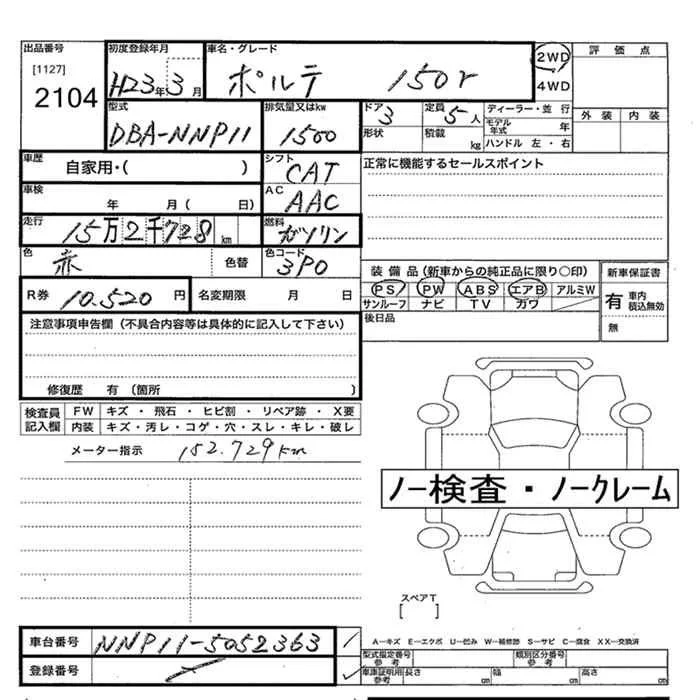 出品番号 初度登録年月 車名・グレード 評価点
[1127]
2104 H23年3月 ポルテ 150r 2WD 4WD
型式 排気量又はkw ドア 3 定員 5人 ディーラー・並 行 外装 内装
DBA-NNP11 1500 形状 積載 kg モデル年式 年 ハンドル 左・右
車歴 自家用・( ) シフト CAT 正常に機能するセールスポイント
車検 年 月( 日) AC AAC
走行 15万2千728km 燃料 ガソリン
色 赤 色替 色コード 3P0
装備品(新車からの純正品に限り○印) 新車保証書
R券 10.520円 名変期限 月 日 PS PW ABS エアB アルミW 有 車内積込無効
サンルーフ ナビ TV カワ
注意事項申告欄(不具合内容等は具体的に記入して下さい) 後日品 無
修復歴 有(箇所 )
検査員記入欄 FW キズ・飛石・ヒビ割・リペア跡・X要
内装 キズ・汚レ・コゲ・穴・スレ・キレ・破レ
メーター指示 152.729km
ノー検査・ノークレーム
スペアT
[ ]
車台番号 NNP11-5052363
A―キズ E―エクボ U―凹み W―補修跡 S―サビ C―腐食 XX―交換済
登録番号
型式指定番号 参考 類別区分番号 参考
車庫証明用 参考 長さ cm 幅 cm 高さ cm